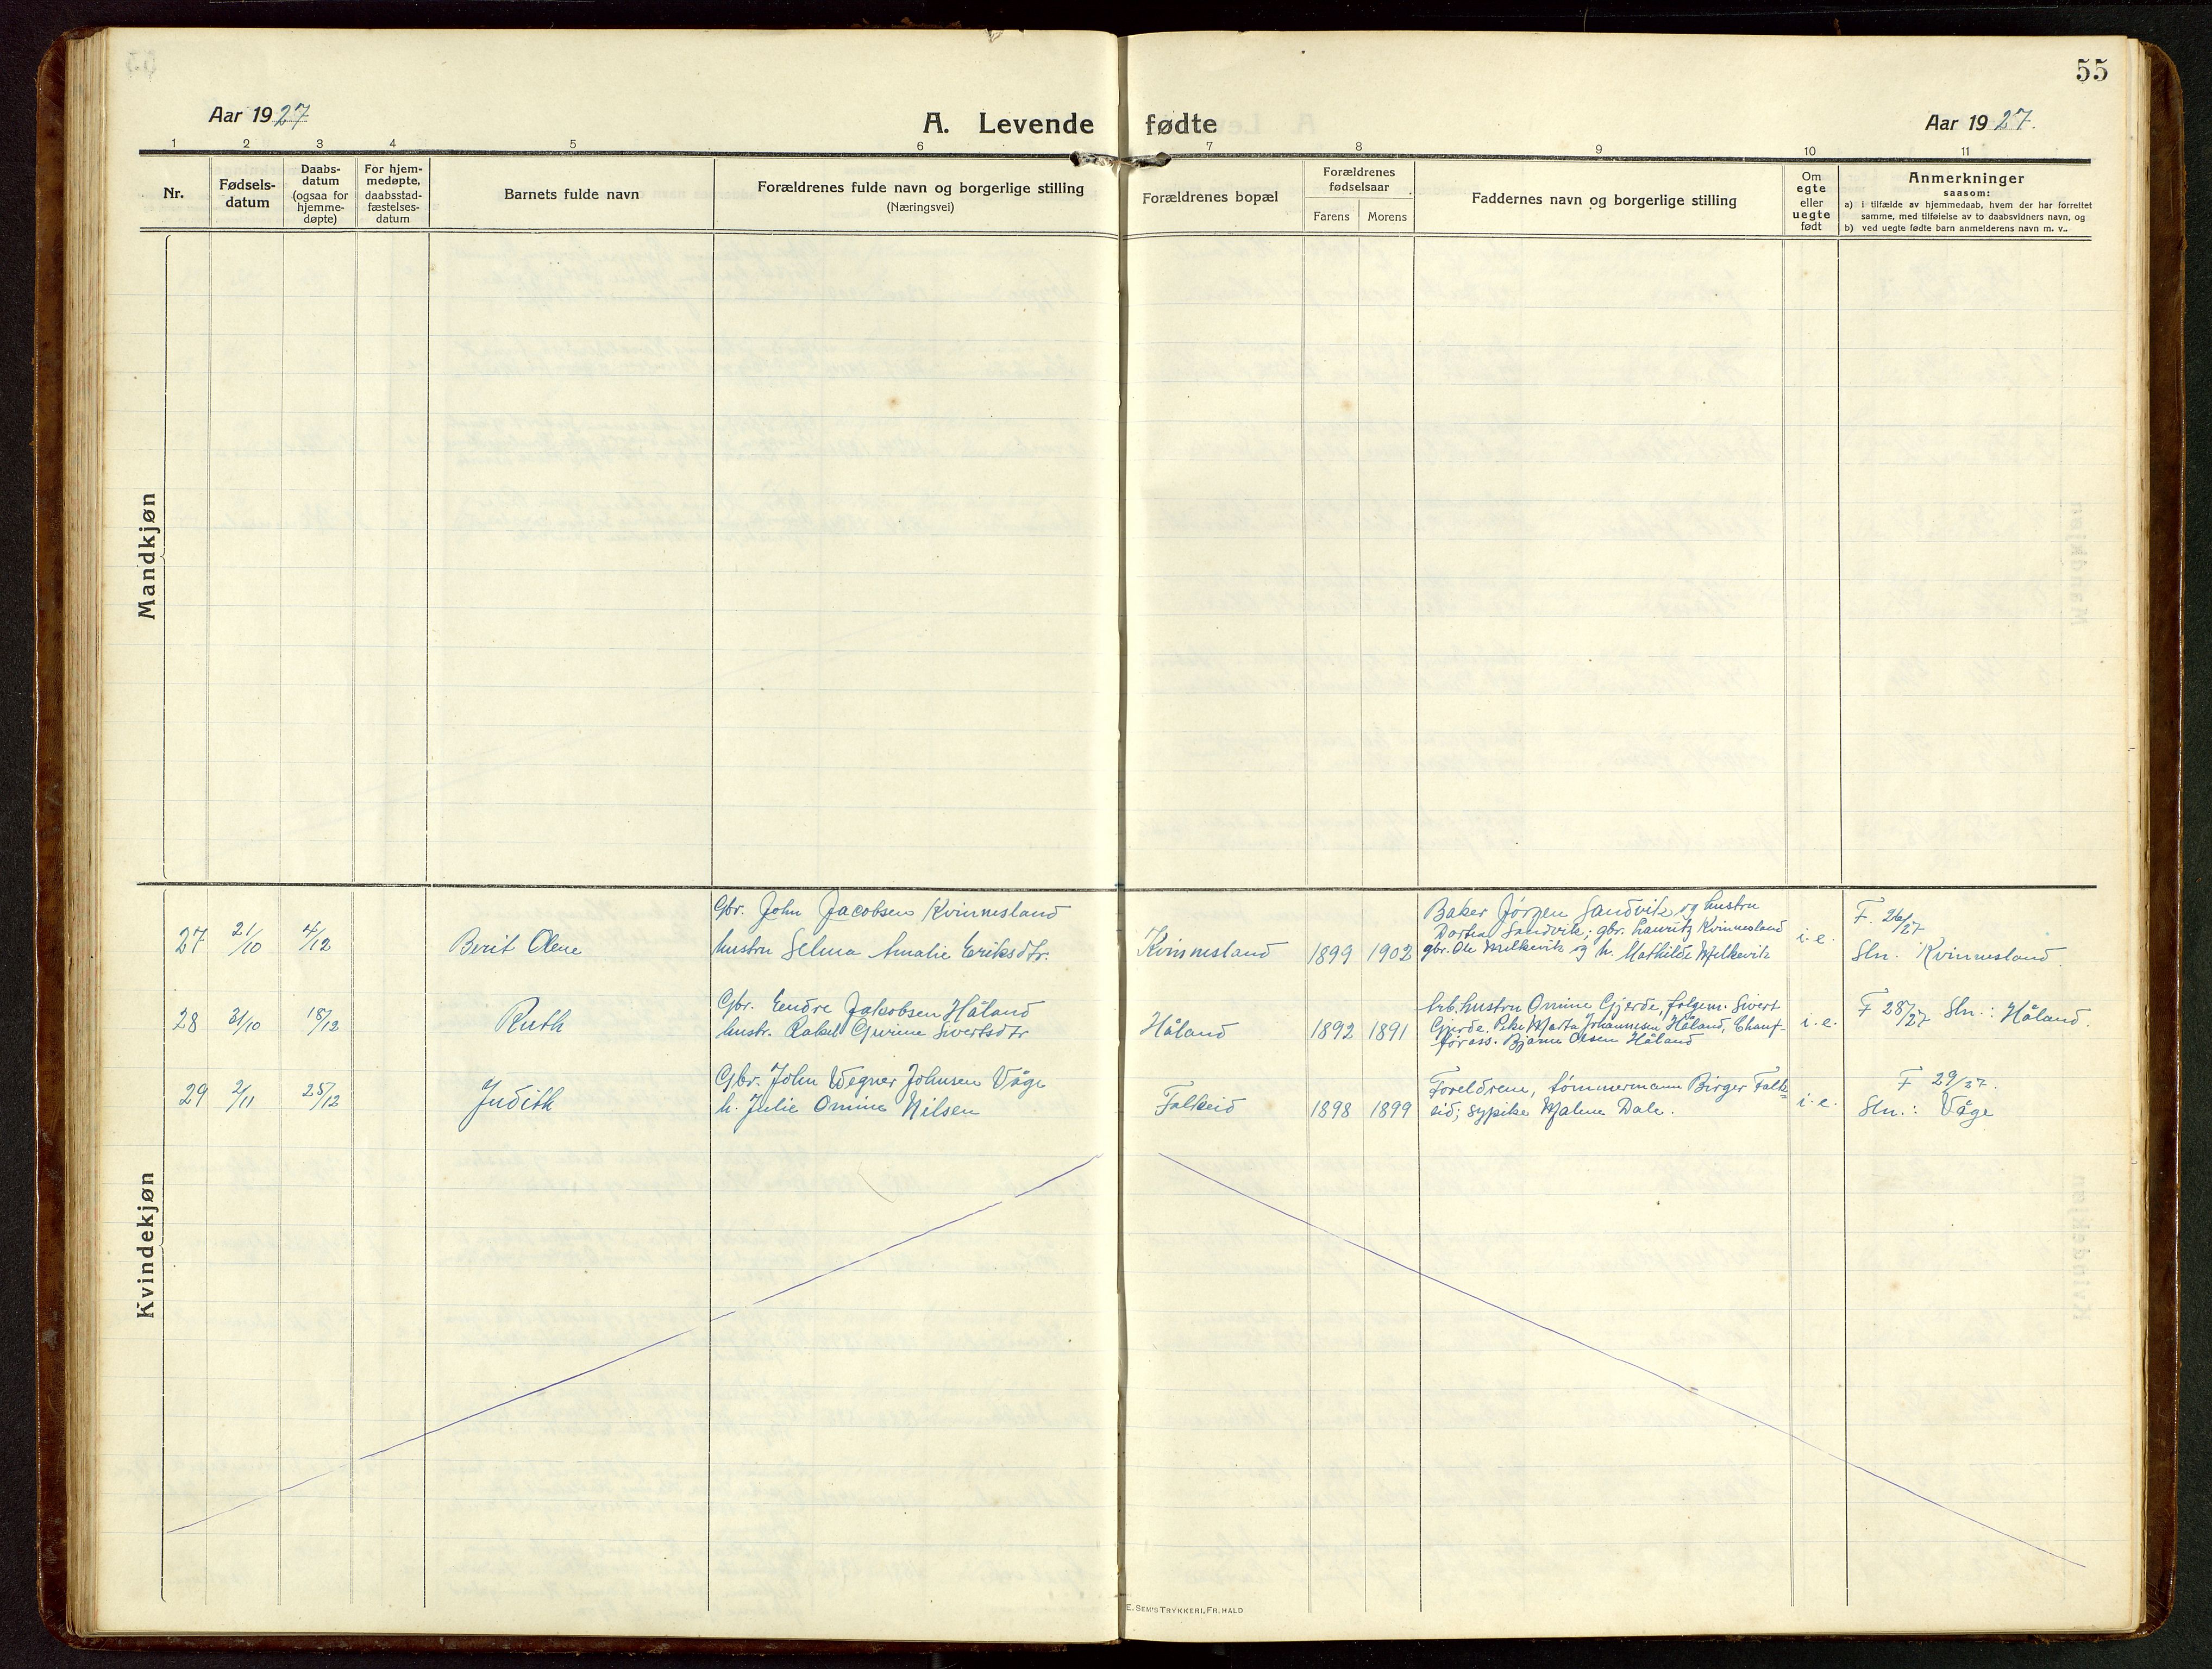 55
Aar 1927
A. Levende fødte
Aar 1927.
1 2 3 4 5 6 7 8 9 10 11
Nr.
Fødsels-
datum
Daabs-
datum
(ogsaa for
hjemme-
døpte)
For hjem-
medøpte,
daabsstad-
fæstelses-
datum
Barnets fulde navn
Forældrenes fulde navn og borgerlige stilling
(Næringsvei)
Forældrenes bopæl
Forældrenes
fødselsaar
Farens Morens
Faddernes navn og borgerlige stilling
Om
egte
eller
uegte
født
Anmerkninger
saasom:
a) i tilfælde av hjemmedaab, hvem der har forrettet
samme, med tilføielse av to daabsvidners navn, og
b) ved uegte fødte barn anmelderens navn m. v..
Mandkjøn
Kvindekjøn
27 21/10 4/12 Berit Olene
Gbr. John Jacobsen Kvinnesland
hustru Selma Amalie Eriksdtr.
Kvinnesland 1899 1902
Baker Jörgen Sandvik og hustru
Dorthea Sandvik; gbr. Lauritz Kvinnesland
gbr. Ole Melkevik og h. Mathilde Melkevik
i. e.
F. 26/27
Sln. Kvinnesland.
28 31/10 18/12 Ruth
Gbr. Endre Jakobsen Håland
hustr. Rakel Gurine Sivertsdtr
Håland 1892 1891
hustru Omine Gjerde, Sivert
Gjerde. Pike Marta Johannesen Håland, Chauf-
förass. Bjarne Olsen Håland
i. e.
F 28/27 Sln.: Håland.
29 2/11 25/12 Judith
Gbr. John Wegner Johnsen Våge
h. Julie Omine Nilsen
Falkeid 1898 1899
Foreldrene, tömmermann Birger Falk-
eid; sypike Malene Dale.
i. e.
F 29/27.
Sln.: Våge
E. SEM'S TRYKKERI, FR. HALD